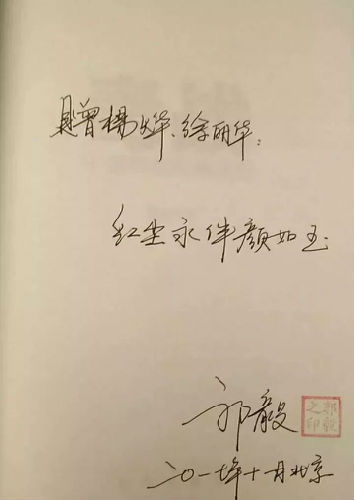 赠杨烨、徐丽华:
红尘永伴颜如玉
郭毅
郭毅之印
二〇一七年十一月北京